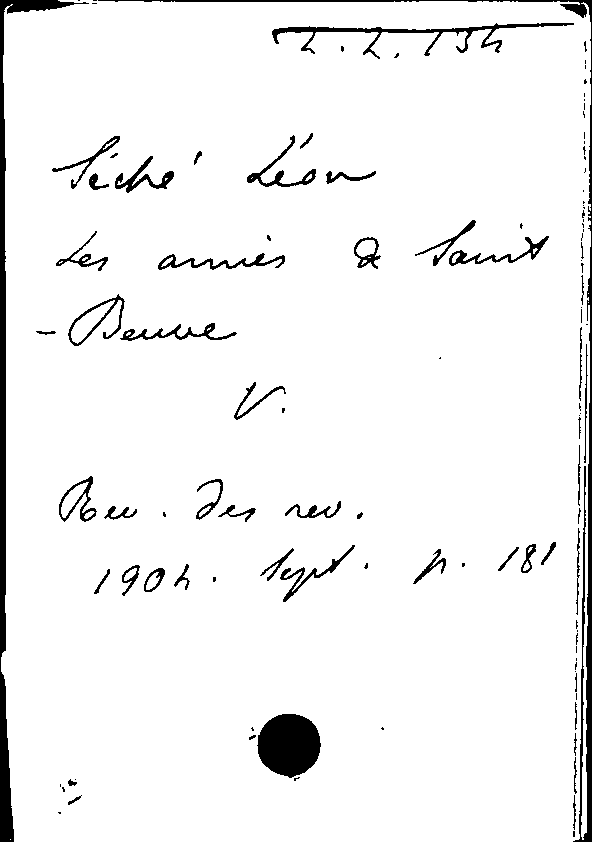 2.2.134
Séché Léon
Les amies de Saint
-Beuve
V.
Rev. des rev.
1904. Sept. p. 181